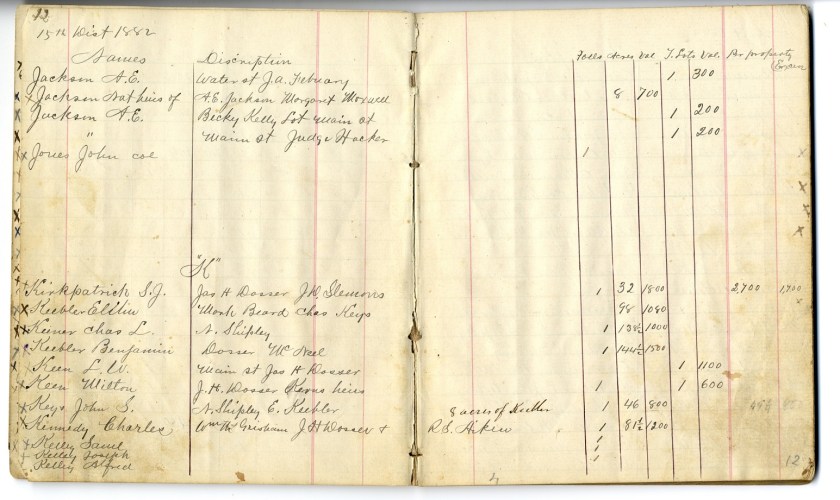 12
15th Dist 1882
Names Discription Polls Acres Val T. Lots Val. Per property Exemp
Jackson A.E. Water st J.A. Febuary 1 300
Jackson Nat heirs of A.E. Jackson Margaret Maxwell 8 700
Jackson A.E. Becky Kelly Lot Main st 1 200
" Mainn st Judge Hacker 1 200
Jones John col 1
"K"
Kirkpatrick S.J. Jas H Dosser J.D. Slemons 1 32 1800 2,700 1,700
Keebler Ellin Mark Beard Chas Keys 98 1080
Keener Chas L. N. Shipley 1 138½ 1000
Keebler Benjamin Dosser Mc Neel 1 144½ 1500
Keen L.W. Main st Jas H Dosser 1 1100
Keen Milton J.H. Dosser Kerns heirs 1 1 600
Keys John S. N. Shipley E. Keebler 8 acres of Keebler 1 46 800
Kennedy Charles Wm M. Grisham J H Dosser & R.S. Aiken 1 81½ 1200
Kelley Saml 1
Kelley Joseph 1
Kelley Alfred 1
12